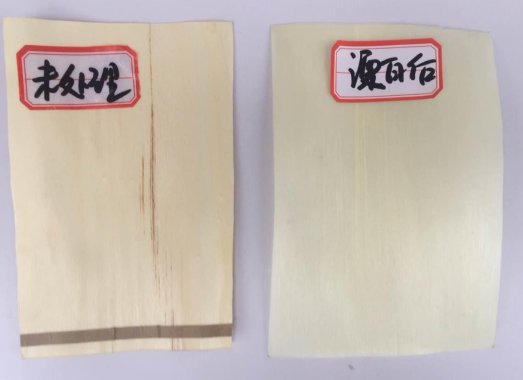 未处理
漂白后